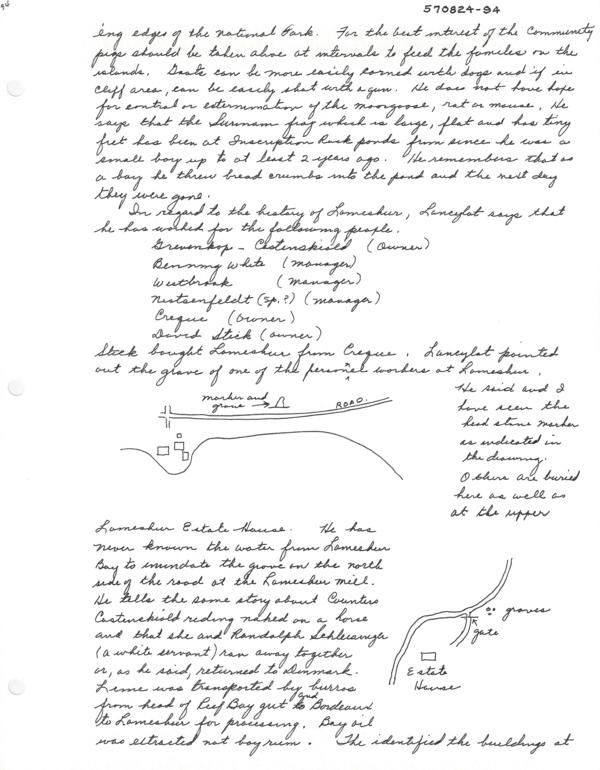 94
570824-94
ing edges of the National Park. For the best interest of the Community
pigs should be taken alive at intervals to feed the families on the
islands. Goats can be more easily corned with dogs and if in
cliff area, can be easily shot with a gun. He does not have hope
for control or extermination of the moongoose, rat or mouse. He
says that the Surinam frog which is large, flat and has tiny
feet has been at Inscription Rock ponds from since he was a
small boy up to at least 2 years ago. He remembers that as
a boy he threw bread crumbs into the pond and the next day
they were gone.
In regard to the history of Lameshur, Lancylot says that
he has worked for the following people.
Grevenkop - Castenskiold (Owner)
Benning White (manager)
Westbrook (manager)
Nistsenfeldt (sp.?) (manager)
Creque (Owner)
David Stick (owner)
Stick bought Lameshur from Creque. Lancylot pointed
out the grave of one of the workers at Lameshur.
marker and
grave
ROAD.
He said and I
have seen the
head stone marker
as indicated in
the drawing.
Others are buried
here as well as
at the upper
Lameshur Estate House. He has
never known the water from Lameshur
Bay to inundate the grove on the north
side of the road at the Lameshur mill.
He tells the same story about Countess
Castenskiold riding naked on a horse
and that she and Randolph
(a white servant) ran away together
or, as he said, returned to Denmark.
Lime was transported by burros
from head of Reef Bay gut and to Bordeaux
to Lameshur for processing. Bay oil
was extracted not bay rum. The identified the buildings at
graves
gate
Estate
House